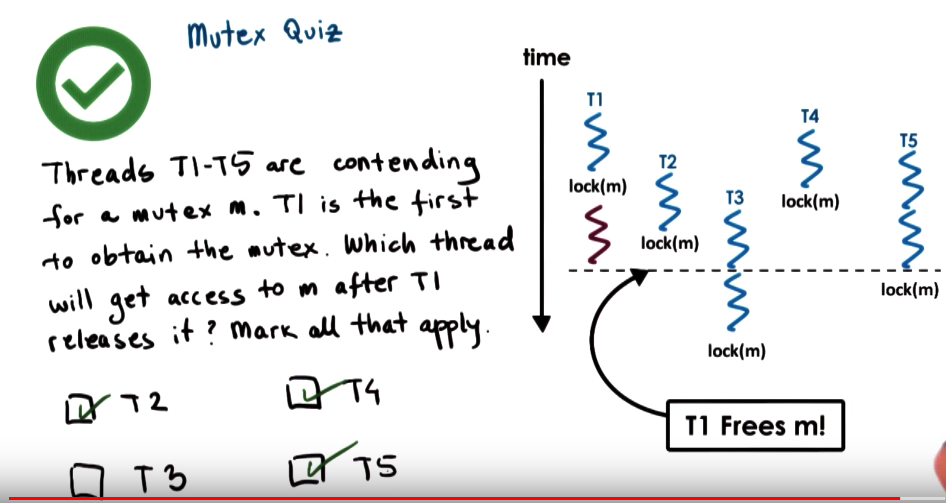 Mutex Quiz
Threads T1-T5 are contending
for a mutex m. T1 is the first
to obtain the mutex. Which thread
will get access to m after T1
releases it? Mark all that apply.
T2
T4
T3
T5
time
T1
T4
T5
T2
lock(m)
T3
lock(m)
lock(m)
lock(m)
lock(m)
T1 Frees m!